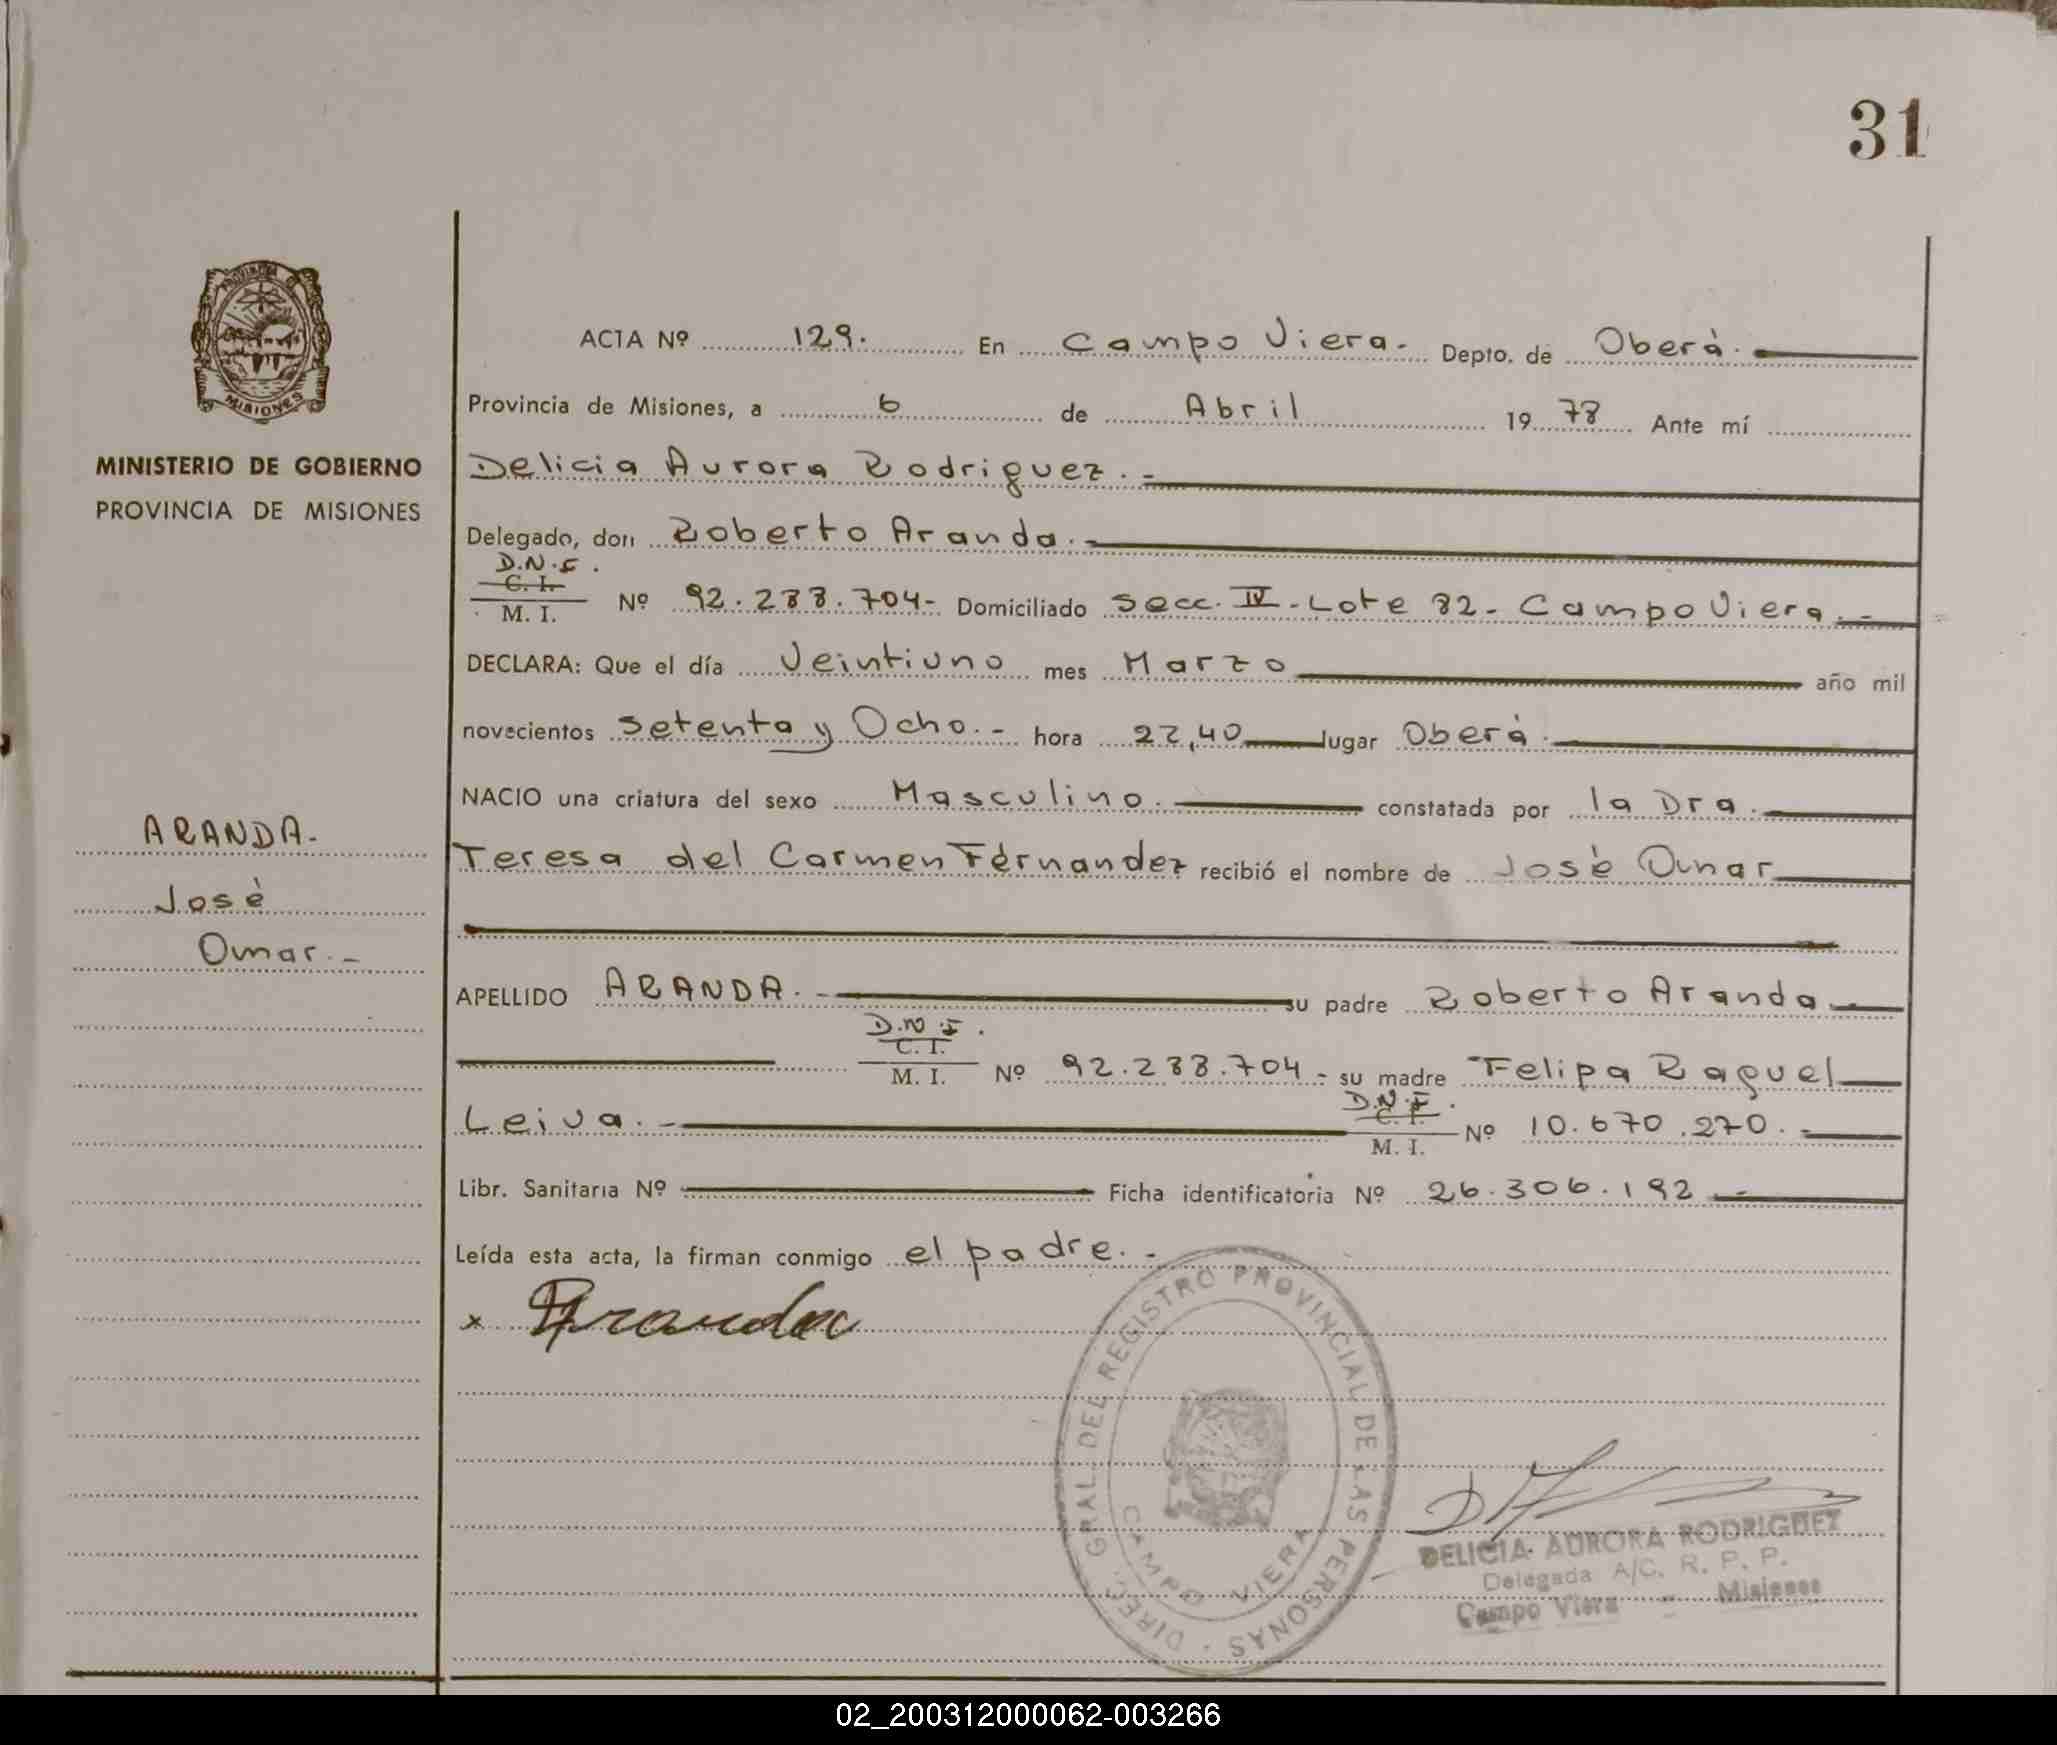 31
PROVINCIA DE
MISIONES
MINISTERIO DE GOBIERNO
PROVINCIA DE MISIONES
ARANDA.-
José
Omar.-
ACTA Nº 129. En Campo Viera.- Depto. de Oberá.
Provincia de Misiones, a 6 de Abril 1978 Ante mí
Delicia Aurora Rodriguez.-
Delegado, don Roberto Aranda.-
D.N.I.
C. I.
M. I. Nº 92.288.704- Domiciliado Secc. IV-Lote 82- Campo Viera.-
DECLARA: Que el día Veintiuno mes Marzo año mil
novecientos Setenta y Ocho.- hora 22,40 lugar Oberá.
NACIO una criatura del sexo Masculino. constatada por la Dra.
Teresa del Carmen Férnandez recibió el nombre de José Omar
APELLIDO ARANDA.- su padre Roberto Aranda-
D.N.I.
C. I.
M. I. Nº 92.288.704- su madre Felipa Raquel
Leiva.-
D.N.I.
C. I.
M. I. Nº 10.670.270.-
Libr. Sanitaria Nº Ficha identificatoria Nº 26.306.192.-
Leída esta acta, la firman conmigo el padre.-
x Aranda
DIREC. GRAL. DEL REGISTRO PROVINCIAL DE LAS PERSONAS
CAMPO VIERA
DELICIA AURORA RODRIGUEZ
Delegada A/C. R. P. P.
Campo Viera - Misiones
02_200312000062-003266